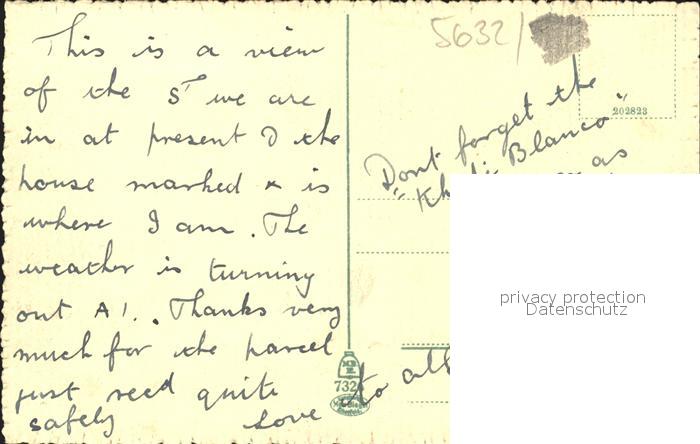 This is a view
of the St we are
in at present & the
house marked x is
where I am. The
weather is turning
out A1. Thanks very
much for the parcel
just recd quite
safely Love
to all
5632/
202823
Dont forget the
Blanco"
as
privacy protection
Datenschutz
732